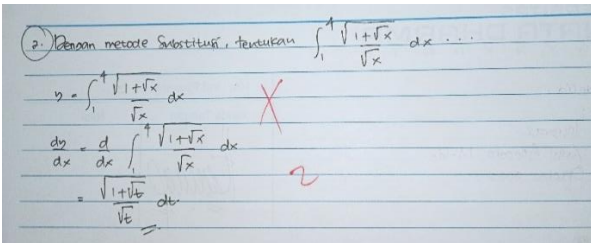 2. Dengan metode Substitusi, tentukan ∫₁⁴ √(1+√x)/√x dx ...
y = ∫₁⁴ √(1+√x)/√x dx
dy/dx = d/dx ∫₁⁴ √(1+√x)/√x dx
= √(1+√t)/√t dt.
2